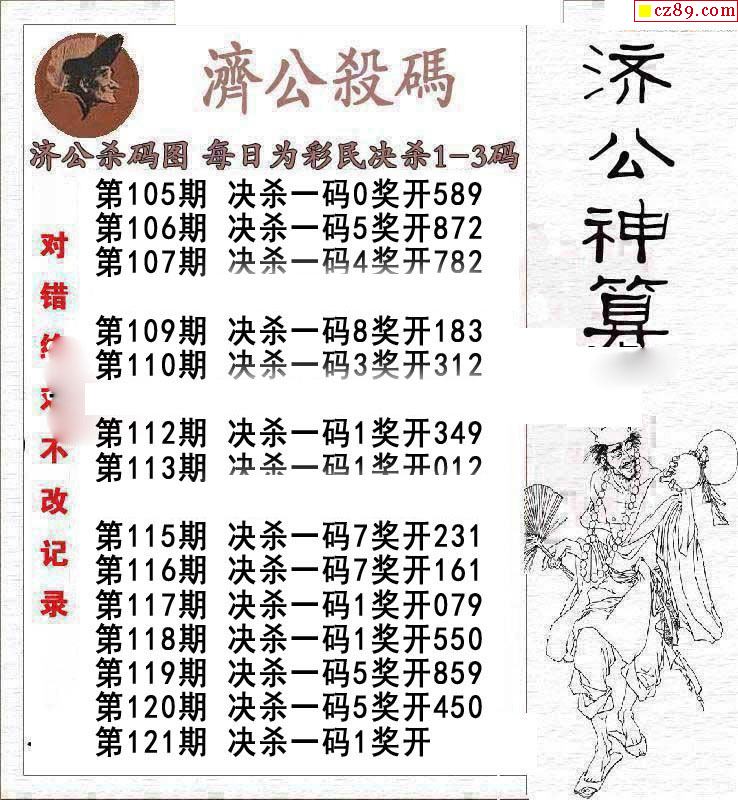 cz89.com
濟公殺碼
济公杀码图 每日为彩民决杀1-3码
第105期 决杀一码0奖开589
第106期 决杀一码5奖开872
第107期 决杀一码4奖开782
第109期 决杀一码8奖开183
第110期 决杀一码3奖开312
第112期 决杀一码1奖开349
第113期 决杀一码1奖开012
第115期 决杀一码7奖开231
第116期 决杀一码7奖开161
第117期 决杀一码1奖开079
第118期 决杀一码1奖开550
第119期 决杀一码5奖开859
第120期 决杀一码5奖开450
第121期 决杀一码1奖开
对错绝对不改记录
济公神算